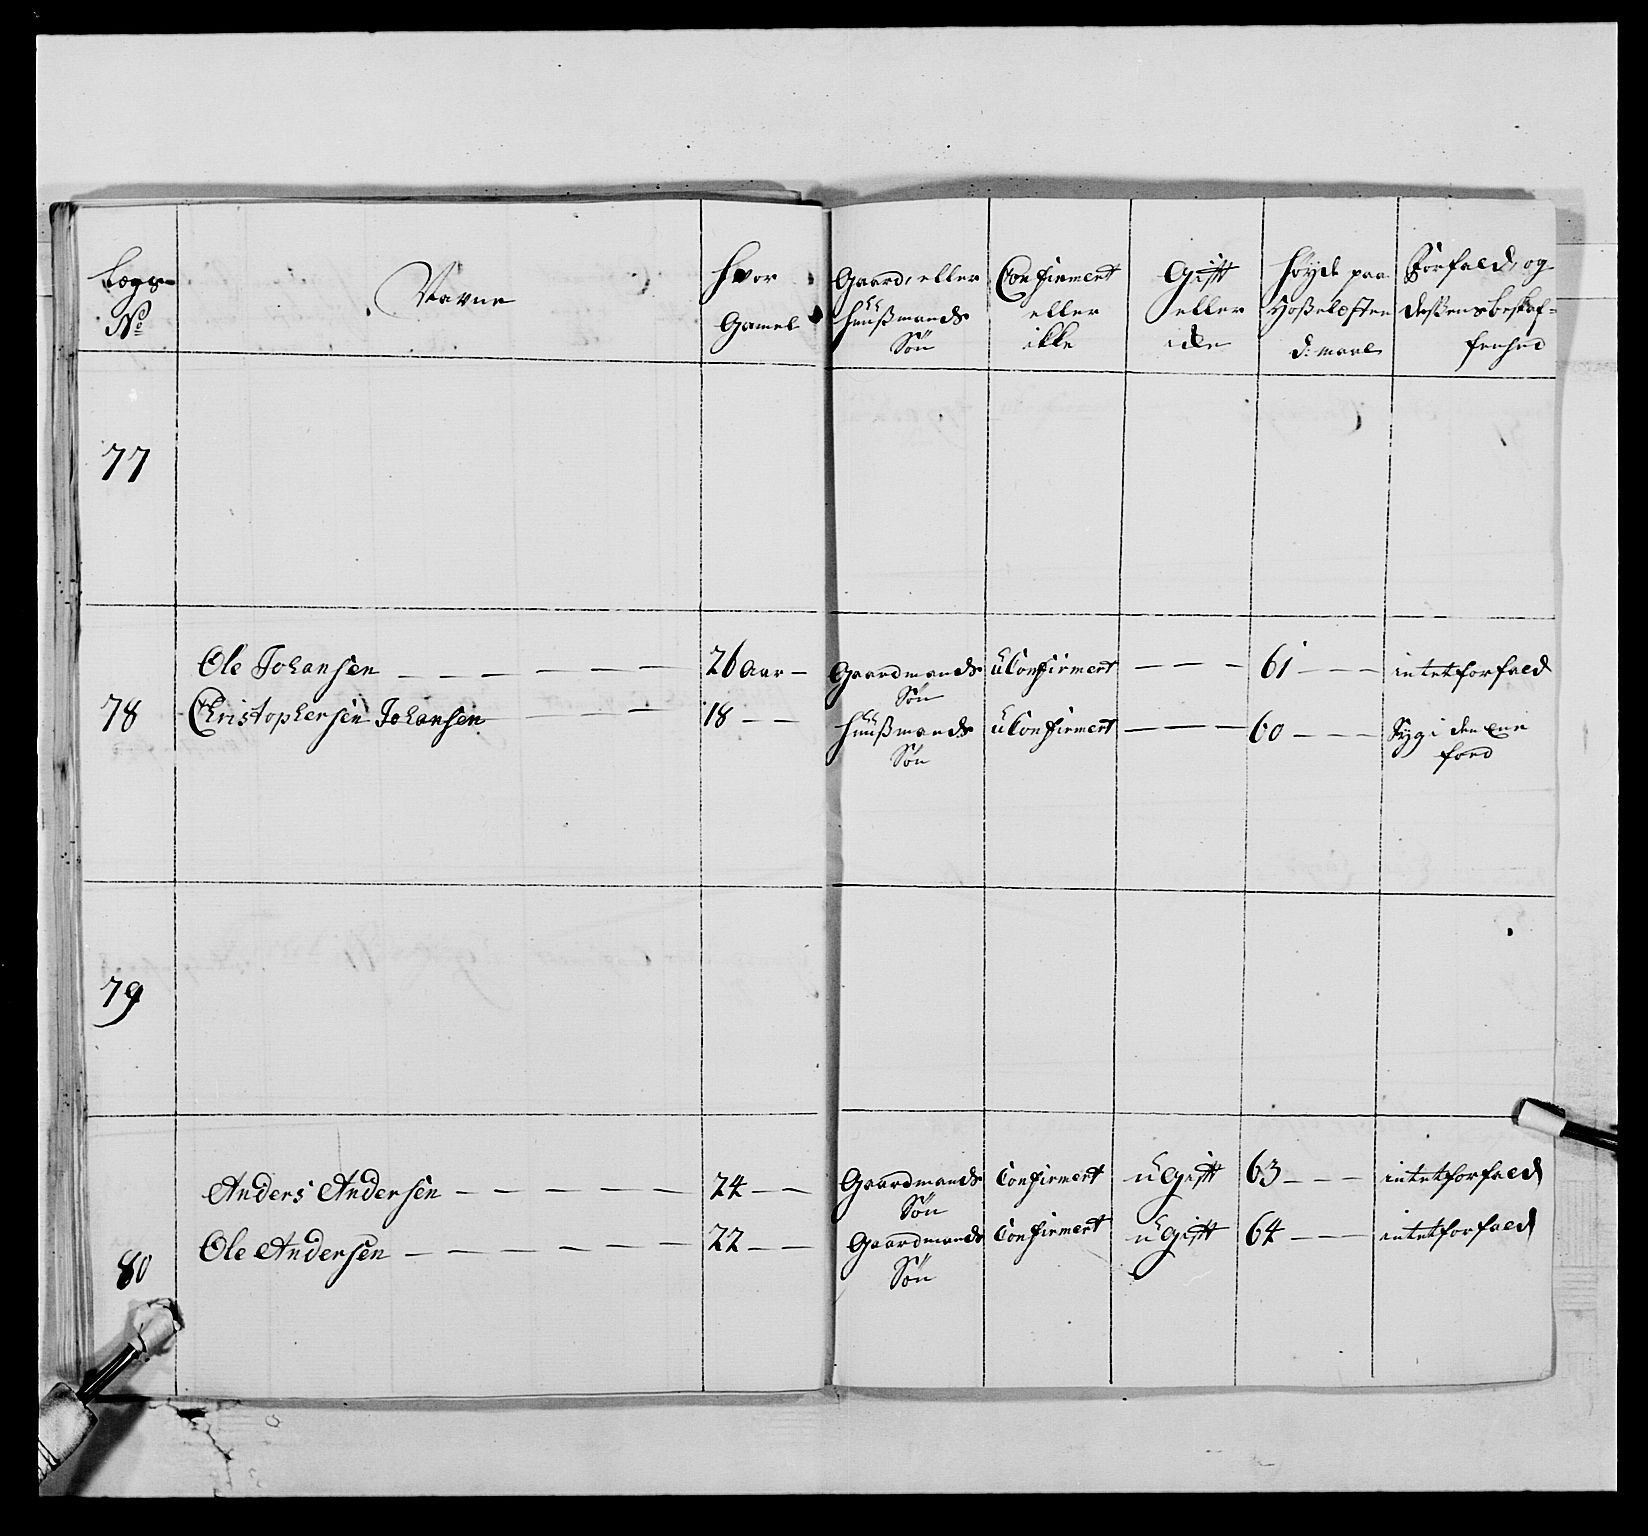 Lægs N° | Navne | Hvor Gamel | Gaard, eller Huusmands Søn | Confirmert eller ikke | Gift eller ikke | Høyde paa Hoseløsten d: maal | Forfald, og deßens beskaffenhed
77
78 | Ole Johansen | 26 Aar | Gaardmands Søn | uConfirmert | — — — | 61 | intet forfald
Christophersen Johansen | 18 | Huußmands Søn | uConfirmert | — — — | 60 | Syg i den Ene foed
79
80 | Anders Andersen | 24 | Gaardmands Søn | Confirmert | ugift | 63 | intet forfald
Ole Andersen | 22 | Gaardmands Søn | Confirmert | ugift | 64 | intet forfald